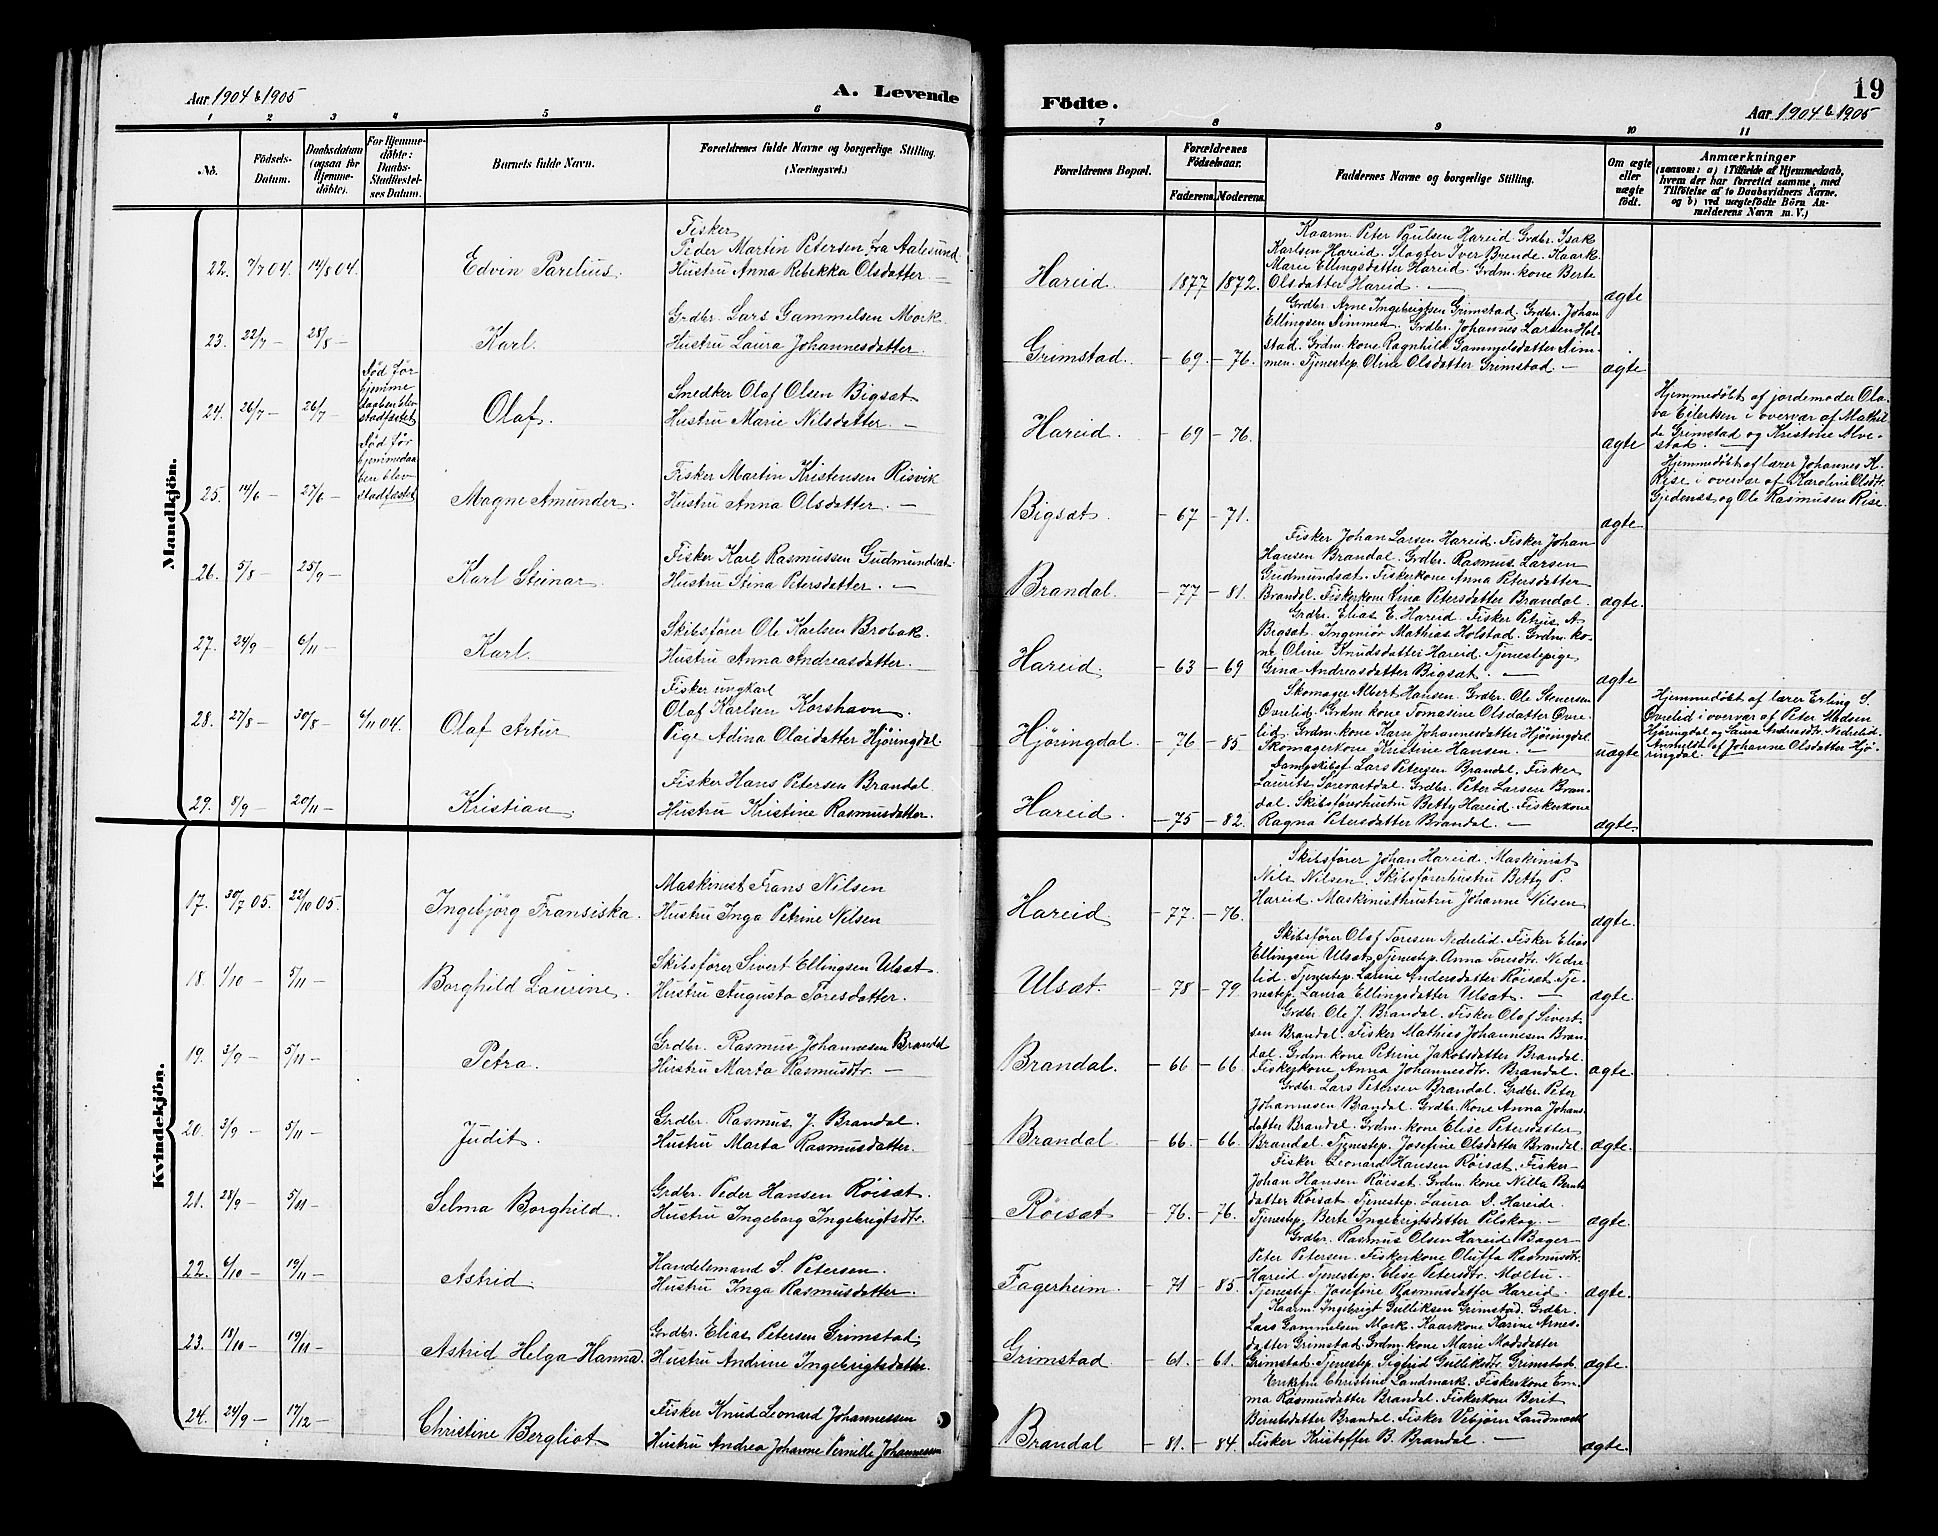 19
Aar 1904 & 1905
A. Levende Födte.
Aar 1904 & 1905
1 2 3 4 5 6 7 8 9 10 11
No.
Födsels-Datum.
Daabsdatum (ogsaa for Hjemme-döbte).
For Hjemme-döbte: Daabs-Stadfæstel-ses Datum.
Barnets fulde Navn.
Forældrenes fulde Navne og borgerlige Stilling.
(Næringsvei.)
Forældrenes Bopæl.
Forældrenes Födselsaar.
Faderens. Moderens.
Faddernes Navne og borgerlige Stilling.
Om ægte eller uægte födt.
Anmærkninger
(saasom: a) i Tilfælde af Hjemmedaab,
hvem der har forrettet samme, med
Tilföielse af to Daabsvidners Navne.
og b) ved uægtefödte Börn An-
melderens Navn m. V.)
Mandkjön.
22. 7/7 04. 14/8 04. Edvin Parelius.
Fisker
Peder Martin Petersen fra Aalesund
Hustru Anna Rebekka Olsdatter. —
Hareid. 1877 1872.
Kaarm. Peter Paulsen Hareid. Grdbr. Isak
Karlsen Hareid. Slagter Iver Brende. Kaark.
Marie Ellingsdatter Hareid. Grdm. kone Berte
Olsdatter Hareid. —
ægte
23. 22/7 — 28/8 — Karl.
Grdbr. Lars Gammelsen Mork.
Hustru Laura Johannesdatter.
Grimstad. — 69. — 76.
Grdbr. Arne Ingebrigtsen Grimstad. Grdbr. Johan
Ellingsen Nimmen. Grdbr. Johannes Larsen Hol-
stad. Grdm. kone Ragnhild Gammelsdatter Nim-
men. Tjenestep. Oline Olsdatter Grimstad. —
ægte
24. 26/7 — 26/7 —
Död för
hjemme
daaben blev
stadfæstet
Olaf.
Snedker Olaf Olsen Bigsæt
Hustru Marie Nilsdatter. —
Hareid. — 69 — 76.
ægte
Hjemmedøbt af jordemoder Ola-
va Eilertsen i overvær af Mathil-
de Grimstad og Kristine Alve-
stad. —
25. 14/6 — 27/6 —
Död för
hjemmedaa-
ben blev
stadfæstet
Magne Amunder.
Fisker Martin Kristensen Risvik
Hustru Anna Olsdatter. —
Bigsæt. — 67 — 71.
ægte
Hjemmedøbt af lærer Johannes K.
Rise i overvær af Karoline Olsdtr.
Gjedenes og Ole Rasmusen Rise.
26. 5/8 — 25/9 — Karl Steinar.
Fisker Karl Rasmussen Gudmundsæt.
Hustru Stina Petersdatter. —
Brandal. — 77 — 81.
Fisker Johan Larsen Hareid. Fisker Johan
Hansen Brandal. Grdbr. Rasmus Larsen
Gudmundsæt. Fiskerkone Anna Petersdatter
Brandal. Fiskerkone Lina Petersdatter Brandal.
ægte.
27. 24/9 6/11 — Karl.
Skibsfører Ole Karlsen Brobak.
Hustru Anna Andreasdatter. —
Hareid. — 63 — 69
Grdbr. Elias E. Hareid. Fisker Petrus A.
Bigsæt. Ingeniør Mathias Holstad. Grdm. ko-
ne Oline Knudsdatter Hareid. Tjenestepige
Gina Andreasdatter Bigsæt. —
ægte
28. 27/8 — 30/8 — 6/11 04. Olaf Artur
Fisker ungkarl
Olaf Karlsen Korshavn.
Pige Adina Olaidatter Hjöringdal.
Hjöringdal. — 76 — 85.
Skomager Albert Hansen. Grdbr. Ole Stenersen
Øvrelid. Grdm. kone Tomasine Olsdatter Øvre-
lid. Grdm. kone Karn Johannesdatter Hjöringdal
Skomagerkone Kristine Hansen. —
uægte
Hjemmedøbt af lærer Erling S.
Øvrelid i overvær af Peter Madsen
Hjöringdal og Laura Andreasdtr. Nedrelid.
Anmeldt af Johanne Olsdatter Hjö-
ringdal. —
29. 8/9 — 20/11 — Kristian
Fisker Hans Petersen Brandal
Hustru Kristine Rasmusdatter.
Hareid. — 75 — 82.
Lars Petersen Brandal. Fisker
Laurits Grdbr. Peter Larsen Bran-
dal. Skibsførerhustru Betty Hareid. Fiskerkone
Ragna Petersdatter Brandal. —
ægte.
Kvindekjön.
17. 30/7 05. 22/10 05. Ingebjörg Fransiska.
Maskinist Frans Nilsen
Hustru Inga Petrine Nilsen
Hareid — 77. — 76.
Skibsfører Johan Hareid. Maskinist
Nils Nilsen. Skibsførerhustru Betty P.
Hareid. Maskinisthustru Johanne Nilsen
ægte.
18. 1/10 — 5/11 — Borghild Laurine.
Skibsfører Sivert Ellingsen Ulsæt.
Hustru Augusta Toresdatter.
Ulsæt. — 78 — 79
Skibsfører Olaf Toresen Nedrelid. Fisker Elias
Ellingsen Ulsæt. Tjenestep. Anna Toresdtr. Nedre-
lid. Tjenestep. Larine Andersdatter Röisæt. Tje-
nestep. Laura Ellingsdatter Ulsæt. —
ægte.
19. 3/9 — 5/11 — Petra.
Grdbr. Rasmus Johannesen Brandal
Hustru Marta Rasmusdtr. —
Brandal. — 66 — 66
Grdbr. Ole J. Brandal. Fisker Olaf Sivert-
sen Brandal. Fisker Mathias Johannesen Bran-
dal. Grdm. kone Petrine Jakobsdatter Brandal.
Fiskerkone Anna Johannesdtr. Brandal.
ægte.
20. 3/9 — 5/11 — Judit.
Grdbr. Rasmus J. Brandal.
Hustru Marta Rasmusdatter.
Brandal — 66. — 66.
Grdbr. Lars Petersen Brandal. Grdbr. Peter
Johannesen Brandal. Grdbr. kone Anna Johans-
datter Brandal. Grdm. kone Elise Petersdatter
Brandal. Tjenestep. Josefine Olsdatter Brandal.
ægte.
21. 28/9 — 5/11 — Selma Borghild.
Grdbr. Peder Hansen Röisæt.
Hustru Ingeborg Ingebrigtsdtr.
Röisæt — 76. — 76.
Fisker Leonard Hansen Röisæt. Fisker
Johan Hansen Röisæt. Grdm. kone Nilla Bernts-
datter Röisæt. Tjenestep. Laura D. Hareide
Tjenestep. Berte Ingebrigtsdatter Pilskog. —
ægte.
22. 6/10 — 19/11 — Astrid.
Handelsmand S. Petersen.
Hustru Inga Rasmusdatter.
Fagerheim. — 71 — 85.
Grdbr. Rasmus Olsen Hareid. Bager
Peter Petersen. Fiskerkone Oluffa Rasmusdtr.
Hareid. Tjenestep. Elise Petersdtr. Moltu. —
Tjenestep. Josefine Rasmusdatter Hareid.
ægte.
23. 18/10 — 19/11 — Astrid Helga Hanna.
Grdbr. Elias Petersen Grimstad.
Hustru Andrine Ingebrigtsdatter.
Grimstad — 61. — 61.
Kaarm. Ingebrigt Gulliksen Grimstad. Grdbr.
Lars Gammelsen Mork. Kaarkone Karine Arnes-
datter Grimstad. Grdm. kone Marie Madsdatter
Grimstad. Tjenestep. Sigfrid Gulliksdtr. Grimstad.
ægte.
24. 24/9 — 17/12 — Christine Bergliot.
Fisker Knud Leonard Johannessen
Hustru Andrea Johanne Pernille Johannessen
Brandal — 81. — 84.
Enkefru Christine Landmark. Fiskerkone Em-
ma Rasmusdatter Brandal. Fiskerkone Berit
Berntsdatter Brandal. Fisker Vebjörn Landmark
Fisker Kristoffer B. Brandal. —
ægte.